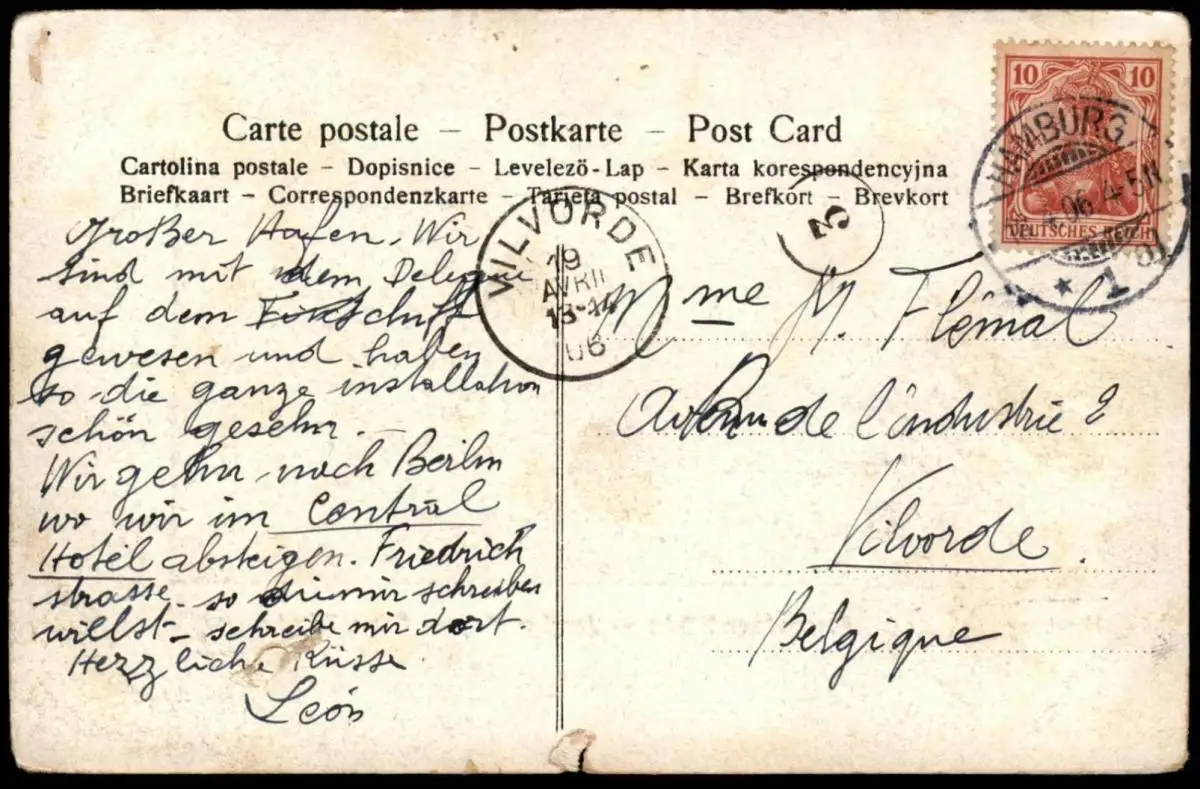 Carte postale – Postkarte – Post Card
Cartolina postale – Dopisnice – Levelező-Lap – Karta korespondencyjna
Briefkaart – Correspondenzkarte – Tarjeta postal – Brefkort – Brevkort
Großer Hafen. Wir
sind mit dem
auf dem
gewesen und haben
so die ganze installation
schön gesehn.
Wir gehn nach Berlin
wo wir im Central
Hotel absteigen. Friedrich
strasse – so du mir schreiben
willst – schreibe mir dort.
Herzliche Küsse
León
VILVORDE
19
AVRIL
13-14
06
10 10
DEUTSCHES REICH
HAMBURG
06 4-5N
* 1
Mme M. Flémal
de l'industrie 2
Vilvorde
Belgique